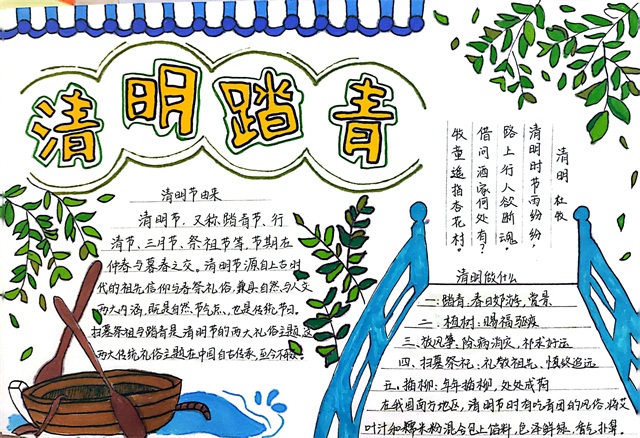 清明踏青
清明节由来
清明节，又称踏青节、行
清节、三月节、祭祖节等，节期在
仲春与暮春之交。清明节源自上古时
代的祖先信仰与春祭礼俗，兼具自然与人文
两大内涵，既是自然节气点，也是传统节日。
扫墓祭祖与踏青是清明节的两大礼俗主题，这
两大传统礼俗主题在中国自古传承，至今不辍。
清明 杜牧
清明时节雨纷纷，
路上行人欲断魂。
借问酒家何处有？
牧童遥指杏花村。
清明做什么
一：踏青：春日郊游，赏景
二：植树：赐福驱疫
三、放风筝，除病消灾，祈求好运
四、扫墓祭礼：礼敬祖先、慎终追远
五、插柳：年年插柳，处处成荫
在我国南方地区，清明节时有吃青团的风俗，将艾
叶汁和糯米粉混合包上馅料，色泽鲜绿，香气扑鼻。